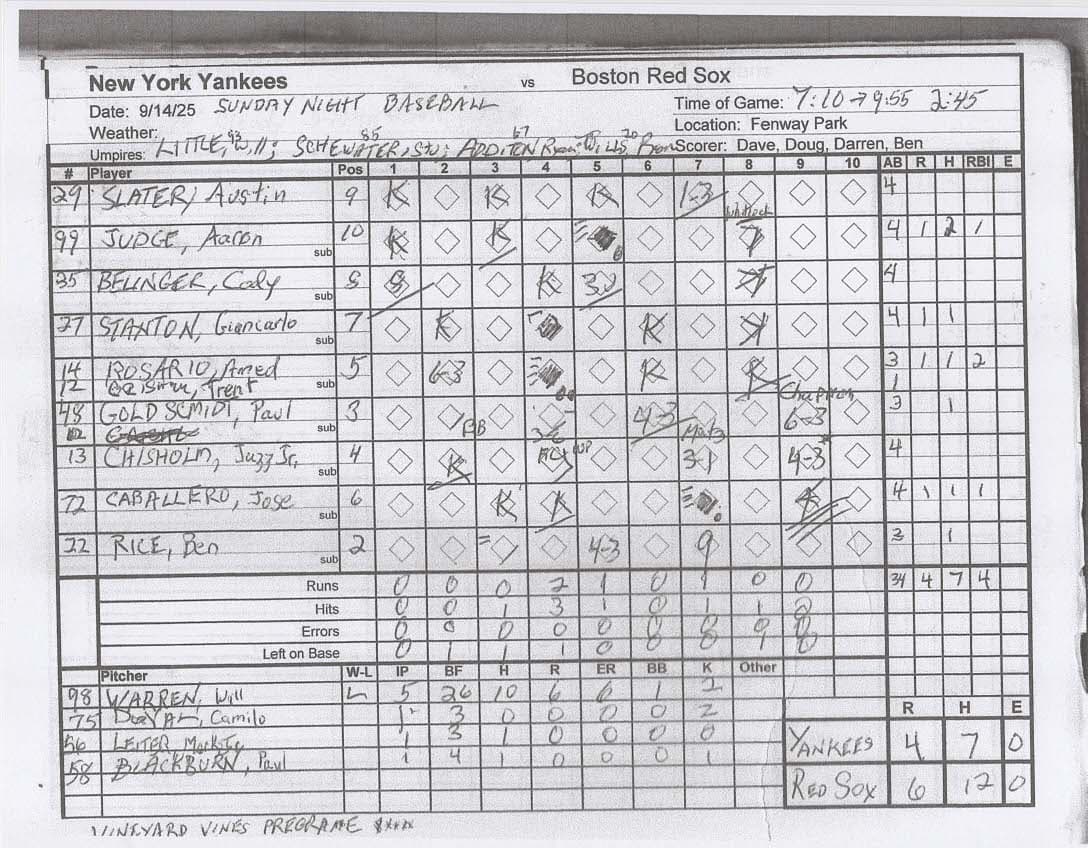 New York Yankees vs Boston Red Sox
Date: 9/14/25 SUNDAY NIGHT BASEBALL Time of Game: 7:10→9:55 2:45
Weather: Location: Fenway Park
Umpires: LITTLE, Will; 93 85 67 20 Scorer: Dave, Doug, Darren, Ben
# Player Pos 1 2 3 4 5 6 7 8 9 10 AB R H RBI E
29 SLATER, Austin 9 K K K 1-3 4
Whitlock
99 JUDGE, Aaron sub 10 K K 7 4 1 2 1
35 BELINGER, Cody sub 8 8 K 4
27 STANTON, Giancarlo sub 7 K K 4 1 1
14 ROSARIO, Amed 5 6-3 K K 3 1 1 2
12 Trent sub 1
Chapman
48 GOLDSCMIDT, Paul sub 3 BB 4-3 6-3 3 1
Matz
13 CHISHOLM, Jazz Jr. sub 4 K 3-1 4-3 4
72 CABALLERO, Jose sub 6 K K 4 1 1 1
22 RICE, Ben sub 2 4-3 9 3 1
Runs 0 0 0 2 1 0 1 0 0 34 4 7 4
Hits 0 0 1 3 1 0 1 1
Errors 0 0 0 0 0
Left on Base 0 1 1 1 0
Pitcher W-L IP BF H R ER BB K Other
98 WARREN, Will L 5 26 10 6 6 1 2
R H E
75 Camilo 3 0 0 0 0 2
YANKEES 4 7 0
56 LEITER, Mark Jr 1 3 1 0 0 0 0
58 BLACKBURN, Paul 1 4 1 0 0 0 1
RED SOX 6 12 0
VINEYARD VINES PREGRAME